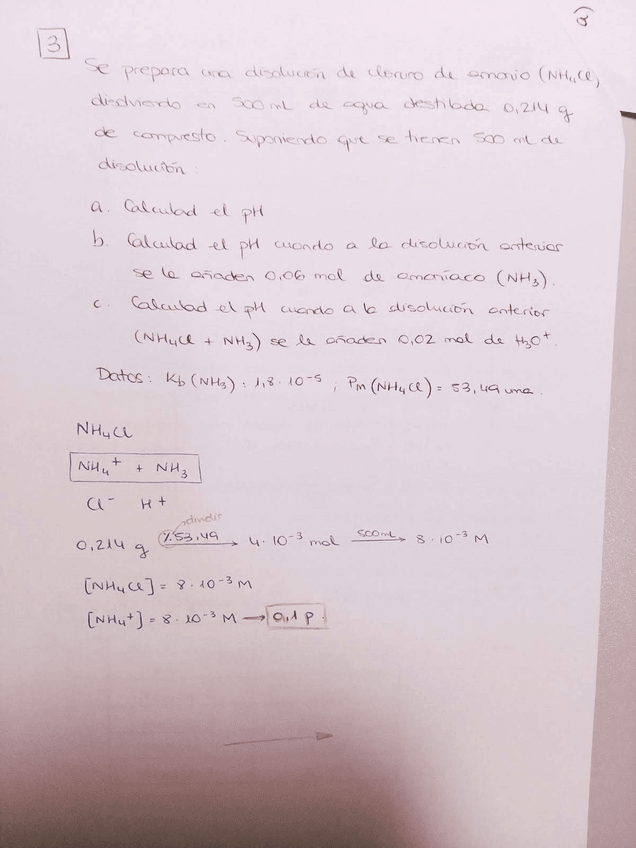 3
3
Se prepara una disolución de cloruro de amonio (NH4Cl)
disolviendo en 500 mL de agua destilada 0,214 g
de compuesto. Suponiendo que se tienen 500 ml de
disolución:
a. Calculad el pH
b. Calculad el pH cuando a la disolución anterior
se le añaden 0,06 mol de amoníaco (NH3).
c. Calculad el pH cuando a la disolución anterior
(NH4Cl + NH3) se le añaden 0,02 mol de H3O+.
Datos: Kb (NH3) : 1,8·10-5 ; Pm (NH4Cl) = 53,49 uma.
NH4Cl
NH4+ + NH3
Cl- H+
dividir
0,214 g %53,49 → 4·10-3 mol 500mL → 8·10-3 M
[NH4Cl] = 8·10-3 M
[NH4+] = 8·10-3 M → 0,1 p.